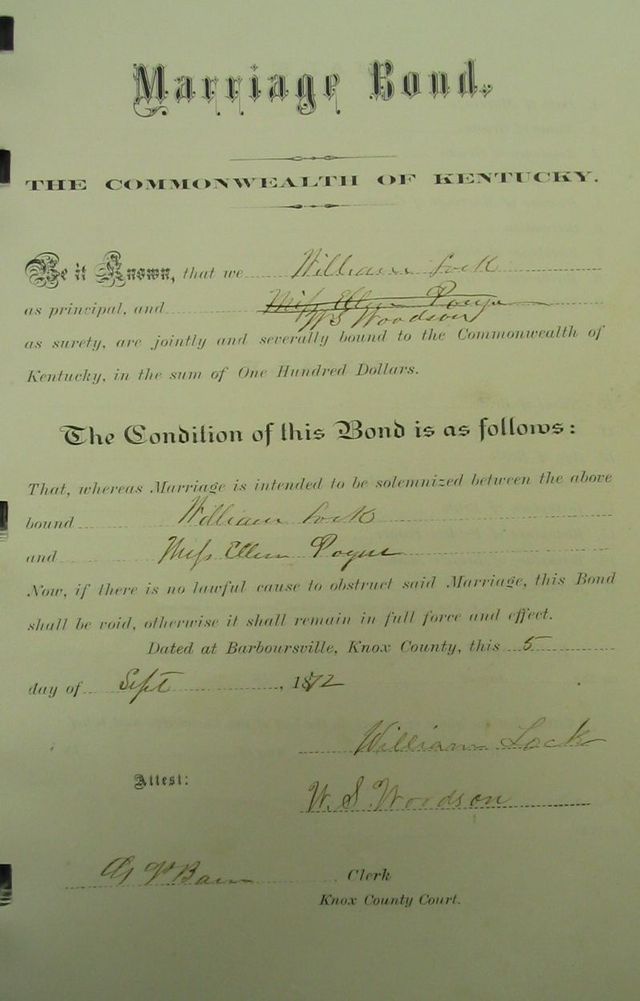 Marriage Bond.
THE COMMONWEALTH OF KENTUCKY.
Be it Known, that we William Lock
as principal, and Miss Ellen Pogue
W S Woodson
as surety, are jointly and severally bound to the Commonwealth of
Kentucky, in the sum of One Hundred Dollars.
The Condition of this Bond is as follows:
That, whereas Marriage is intended to be solemnized between the above
bound William Lock
and Miss Ellen Pogue
Now, if there is no lawful cause to obstruct said Marriage, this Bond
shall be void, otherwise it shall remain in full force and effect.
Dated at Barboursville, Knox County, this 5
day of Sept, 1872
William Lock
Attest:
W. S. Woodson
Clerk
Knox County Court.